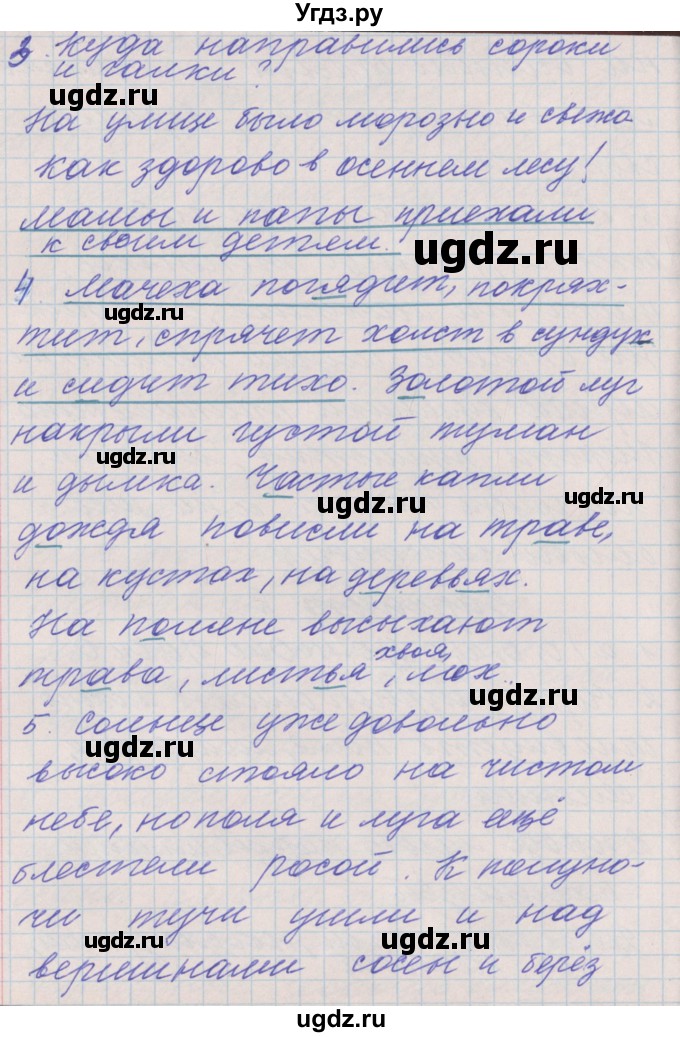 Угдз.ру
3. Куда направились сороки
и галки?
ugdz.ru
На улице было морозно и свежо
Как здорово в осеннем лесу!
мамы и папы приехали
к своим детям.
ugdz.ru
4. Мачеха поглядит, покрях-
ugdz.ru
тит, спрячет холст в сундук
и сидит тихо. Золотой луг
накрыли густой туман
ugdz.ru
и дымка. Частые капли
ugdz.ru
ugdz.ru
дождя повисли на траве,
на кустах, на деревьях.
На поляне высыхают
трава, листья, хвоя, мох.
ugdz.ru
5. Солнце уже довольно
ugdz.ru
высоко стояло на чистом
небе, но поля и луга ещё
блестели росой. К полуно-
чи тучи ушли и над
ugdz.ru
ugdz.ru
вершинами сосен и берёз
ugdz.ru